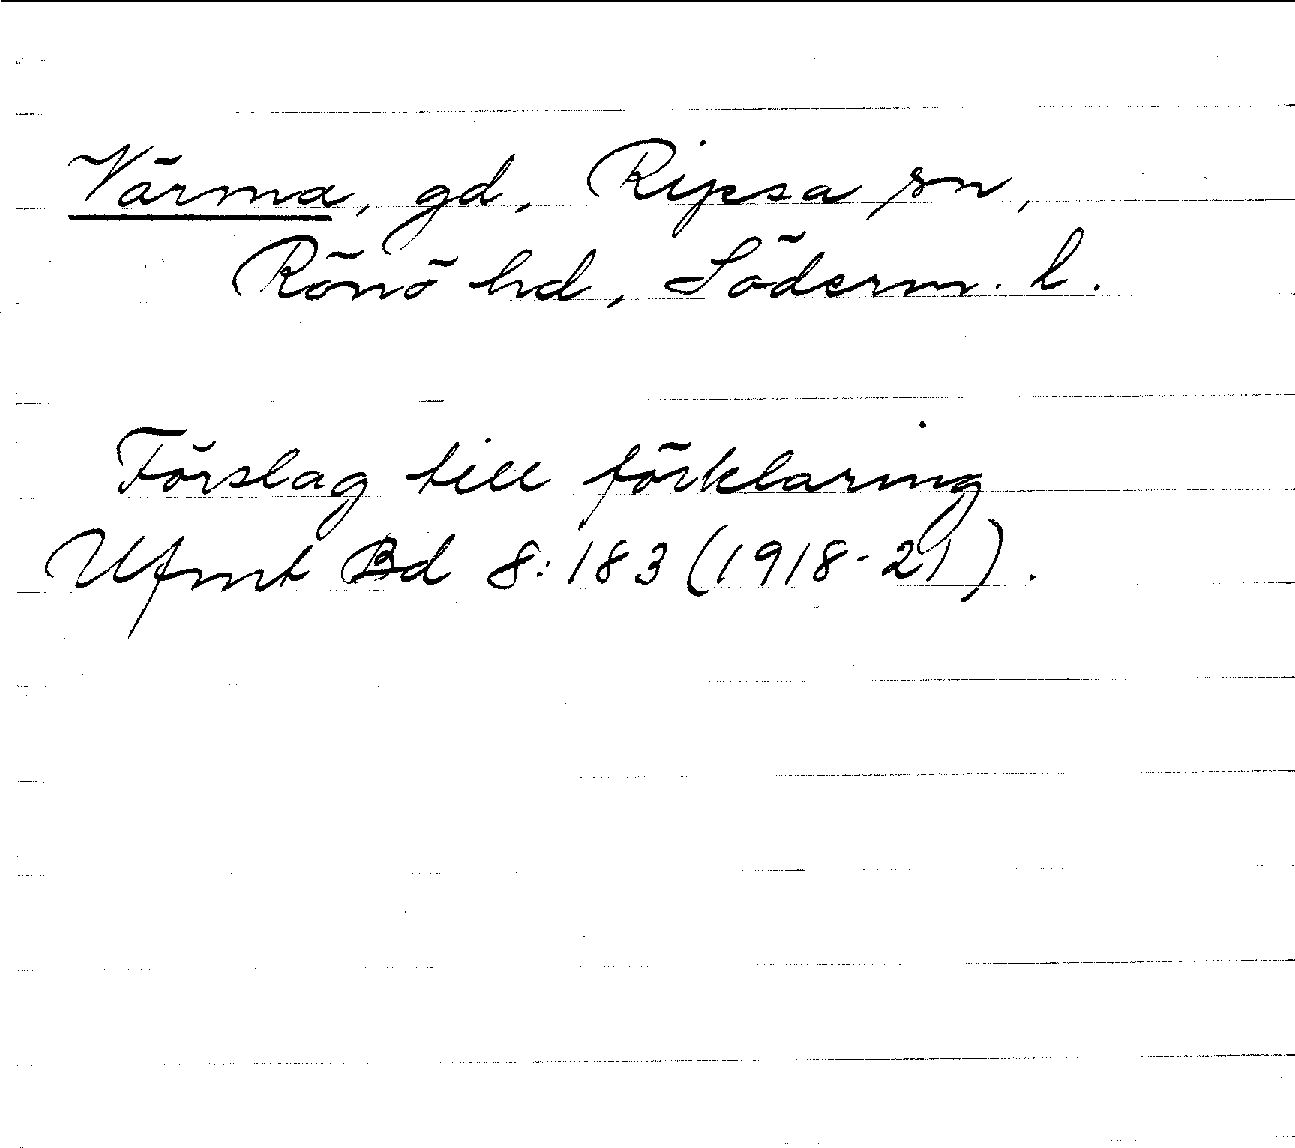 Värma, gd, Ripsa sn,
Rönö hd, Söderm. l.
Förslag till förklaring
Ufmt Bd 8:183 (1918-21).